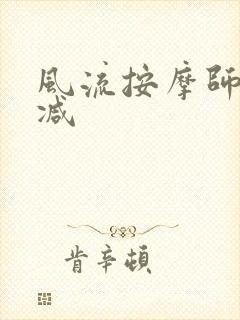 風流按摩師
减
肯辛頓